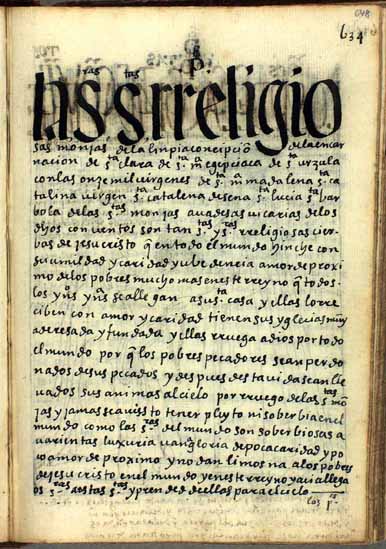 634
las sras stas rreligio
sas monjas de la linpia conciepcio de la encar
nacion de s.ta clara de s.ta m egipciaca de s.ta urzula
con las onze mil uirgenes de s.ta m madalena s.ta ca
talina uirgen s.ta catalena de sena s.ta lucia s.ta bar
bola de las s.tas monjas auadesas uicarias de los
dhos conuentos son tan s.tas y s.ras rreligiosas cier
bas de jesucristo q en todo el mundo hinche con
su umildad y caridad y ubedencia amor de proxi
mo de los pobres mucho mas en este rreyno q todos
los yn.os yn.as se allegan a su s. casa y ellas lo rre
ciben con amor y caridad tienen sus yglecias muy
aderesada y fundada y ellas rruega a dios por todo
el mundo por q los pobres pecadores sean perdo
nados de sus pecados y despues desta uida sean lle
uados sus animas al cielo por rruego de las s.tas mo
jas y jamas se a uisto tener pleyto ni soberbia en el
mundo como los s.tas del mundo son soberbiosas a
uarientas luxuria uanagloria de poca caridad y po
co amor de proximo y no dan limosna a los pobres
de jesucristo en el mundo y en este rreyno y aci allega
os s.ras a estas s.tas y prended dellas para el cielo
los p.